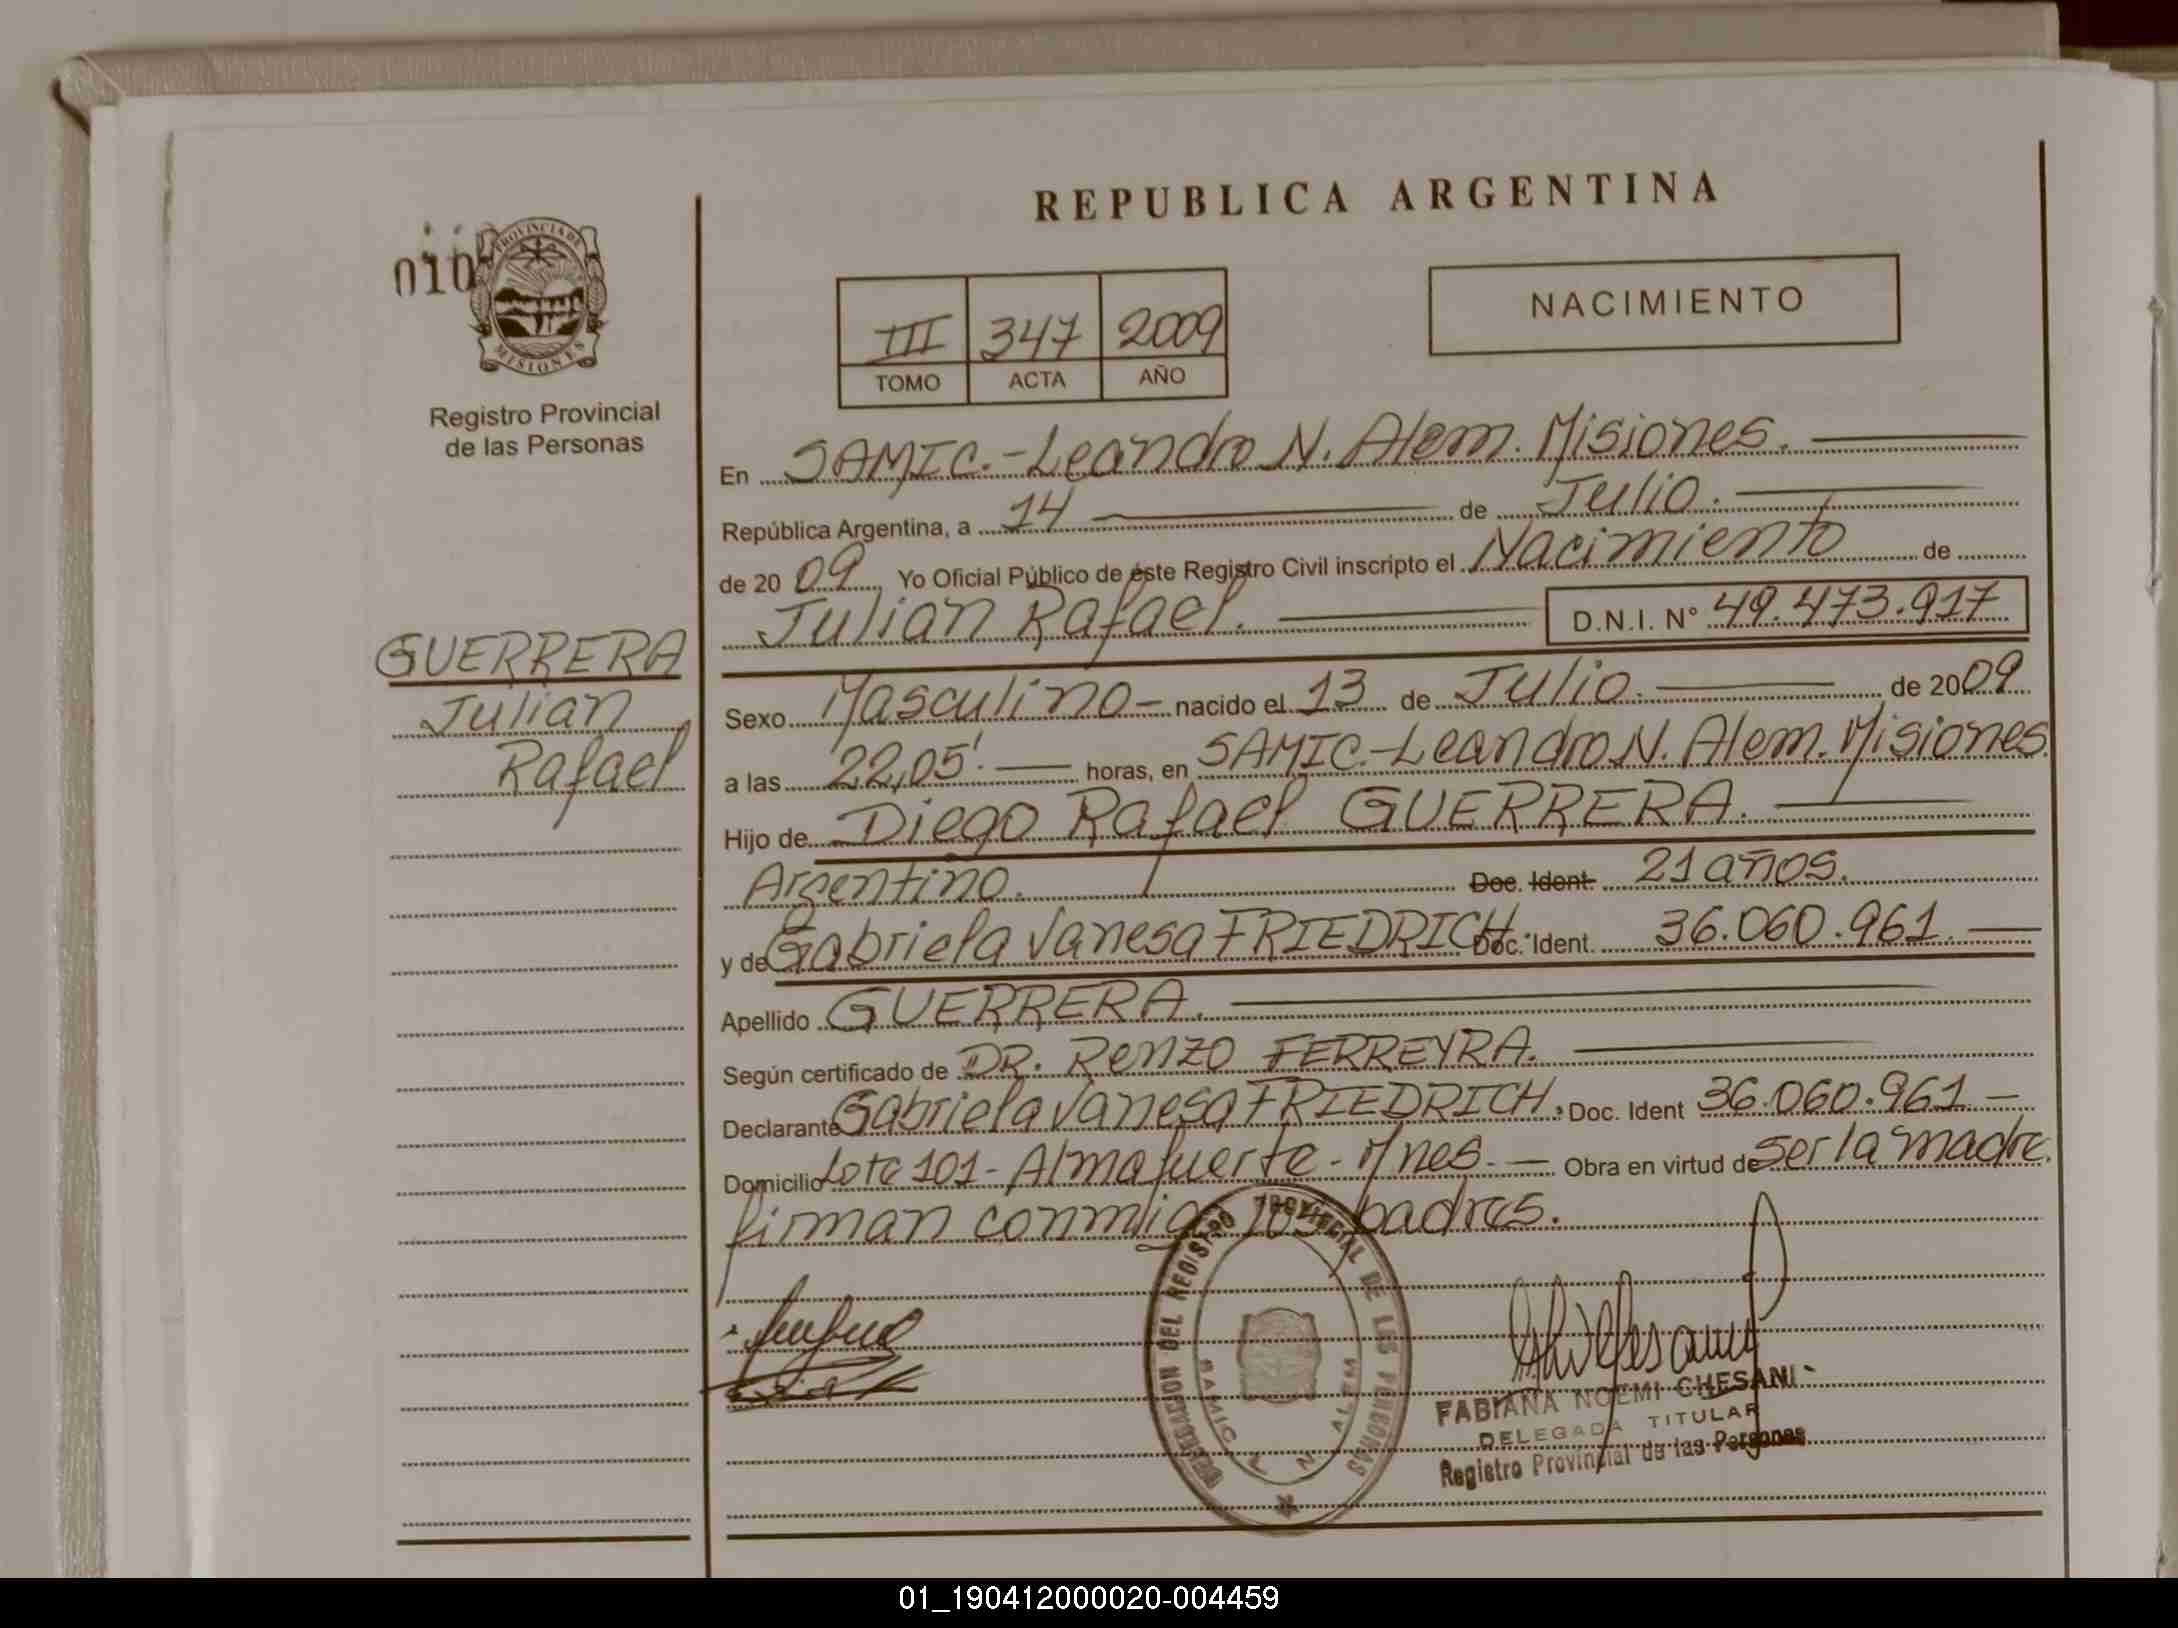 REPUBLICA ARGENTINA
010
PROVINCIA DE
MISIONES
Registro Provincial
de las Personas
III 347 2009
TOMO ACTA AÑO
NACIMIENTO
En SAMIC.-Leandro N. Alem. Misiones.
República Argentina, a 14 de Julio.
de 20 09 Yo Oficial Público de éste Registro Civil inscripto el Nacimiento de
Julian Rafael. D.N.I. N° 49.473.917
GUERRERA
Julian
Rafael
Sexo Masculino - nacido el 13 de Julio. de 2009
a las 22,05'. horas, en SAMIC.-Leandro N. Alem. Misiones.
Hijo de Diego Rafael GUERRERA.
Argentino. Doc. Ident. 21 años.
y de Gabriela Vanesa FRIEDRICH. Doc. Ident. 36.060.961.
Apellido GUERRERA.
Según certificado de DR. Renzo FERREYRA.
Declarante Gabriela Vanesa FRIEDRICH. Doc. Ident 36.060.961 -
Domicilio Lote 101 - Almafuerte - Mnes. - Obra en virtud de ser la madre.
firman conmigo los padres.
DELEGACION DEL REGISTRO PROVINCIAL DE LAS PERSONAS
SAMIC L. N. ALEM
FABIANA NOEMI CHESANI
DELEGADA TITULAR
Registro Provincial de las Personas
01_190412000020-004459